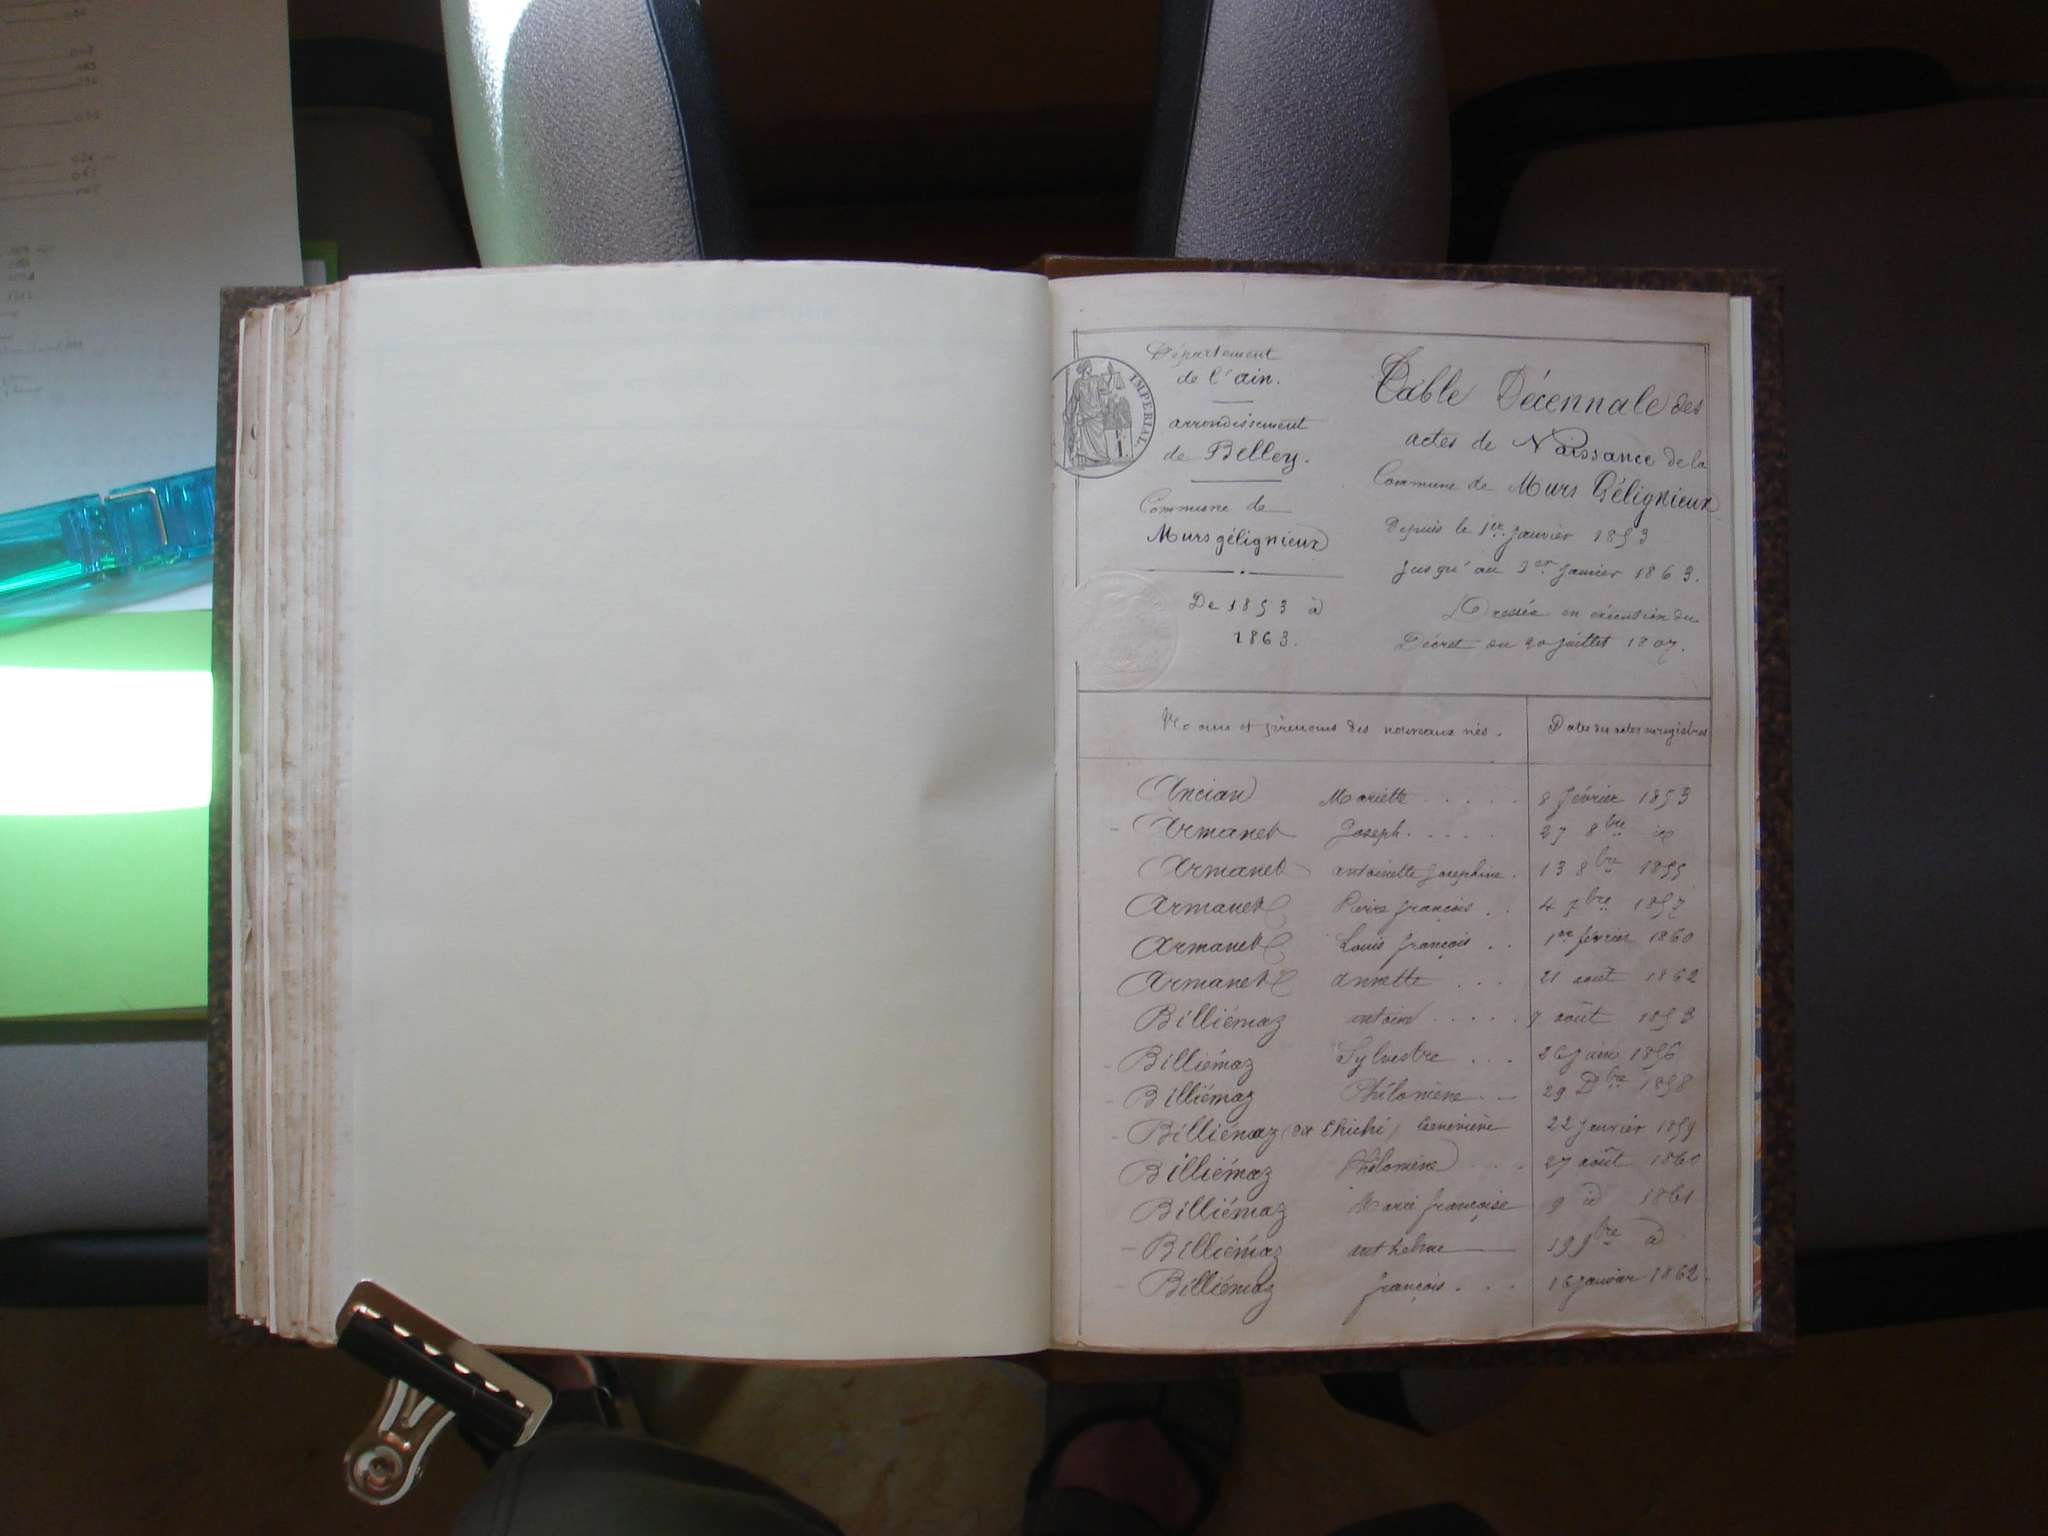 Département
de l'ain.
arrondissement
de Belley.
Commune de
Murs gélignieux
De 1853 à
1863.
IMPERIAL
Table Décennale des
actes de Naissance de la
Commune de Murs Gélignieux
Depuis le 1er Janvier 1853
Jusqu'au 1er Janvier 1863.
Dressée en exécution du
Décret du 20 juillet 1807.
Noms et prénoms des nouveaux nés. Dates des actes enregistrés
Ancian Mariette 8 février 1853
Armanet Joseph 27 8bre id
Armanet antoinette Josephine 13 8bre 1855
Armanet Pierre françois 4 7bre 1857
Armanet Louis françois 1er février 1860
Armanet annette 21 août 1862
Billiémaz antoine août 1853
Billiémaz Sylvestre 26 juin 1856
Billiémaz Philomène 29 Dbre 1858
Billiémaz (dit Chichi) Geneviève 22 Janvier 1859
Billiémaz Philomène 27 août 1860
Billiémaz Marie françoise 9 id 1861
Billiémaz anthelme 19 9bre id
Billiémaz françois 16 Janvier 1862.